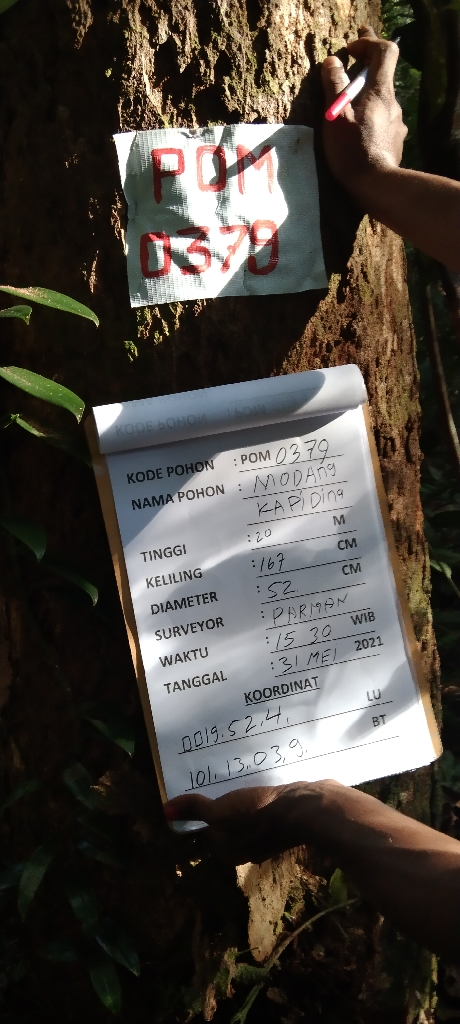 POM
0379
KODE POHON : POM 0379
NAMA POHON : MODANG
KAPIDING
TINGGI : 20 M
KELILING : 167 CM
DIAMETER : 52 CM
SURVEYOR : PARMAN
WAKTU : 15 30 WIB
TANGGAL : 31 MEI 2021
KOORDINAT
0019.52.4. LU
101.13.03,9. BT